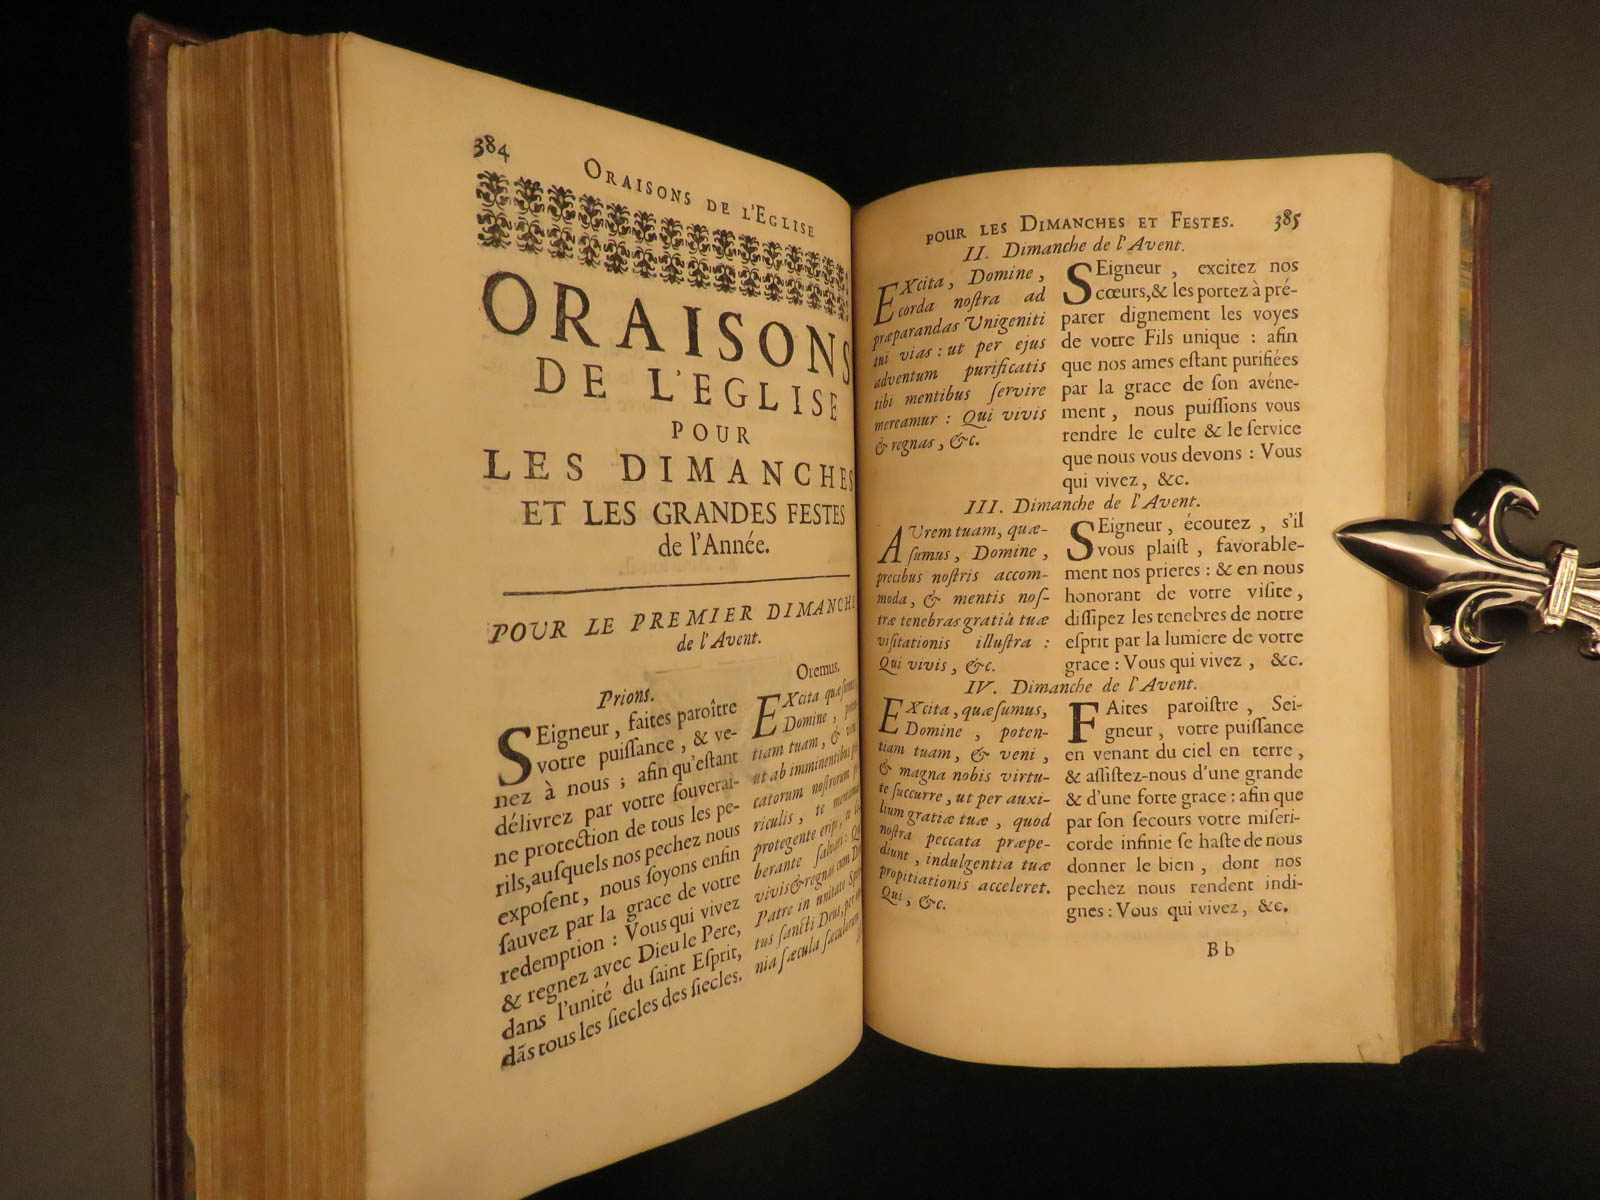 384
ORAISONS DE L'EGLISE
ORAISONS
DE L'EGLISE
POUR
LES DIMANCHES
ET LES GRANDES FESTES
de l'Année.
POUR LE PREMIER DIMANCHE
de l'Avent.
Prions.
SEigneur, faites paroître
votre puiſſance, & ve-
nez à nous ; afin qu'eſtant
délivrez par votre ſouverai-
ne protection de tous les pe-
rils, auſquels nos pechez nous
expoſent, nous ſoyons enfin
ſauvez par la grace de votre
redemption : Vous qui vivez
& regnez avec Dieu le Pere,
dans l'unité du ſaint Eſprit,
dãs tous les ſiecles des ſiecles.
Oremus.
EXcita quæſumus,
Domine,
tiam tuam, & veni
ut ab imminentibus
catorum noſtrorum
riculis, te mereamur
protegente eripi, te
berante ſalvari:
vivis & regnas cum
Patre in unitate
tus ſancti Deus, per
nia ſæcula ſæculorum.
POUR LES DIMANCHES ET FESTES. 385
II. Dimanche de l'Avent.
EXcita, Domine,
corda noſtra ad
præparandas Unigeniti
tui vias : ut per ejus
adventum purificatis
tibi mentibus ſervire
mereamur : Qui vivis
& regnas, &c.
SEigneur, excitez nos
cœurs, & les portez à pré-
parer dignement les voyes
de votre Fils unique : afin
que nos ames eſtant purifiées
par la grace de ſon avéne-
ment, nous puiſſions vous
rendre le culte & le ſervice
que nous vous devons : Vous
qui vivez, &c.
III. Dimanche de l'Avent.
AUrem tuam, quæ-
ſumus, Domine,
precibus noſtris accom-
moda, & mentis noſ-
træ tenebras gratiâ tuæ
viſitationis illuſtra :
Qui vivis, &c.
SEigneur, écoutez, s'il
vous plaiſt, favorable-
ment nos prieres : & en nous
honorant de votre viſite,
diſſipez les tenebres de notre
eſprit par la lumiere de votre
grace : Vous qui vivez, &c.
IV. Dimanche de l'Avent.
EXcita, quæſumus,
Domine, poten-
tiam tuam, & veni,
& magna nobis virtu-
te ſuccurre, ut per auxi-
lium gratiæ tuæ, quod
noſtra peccata præpe-
diunt, indulgentia tuæ
propitiationis acceleret.
Qui, &c.
FAites paroiſtre, Sei-
gneur, votre puiſſance
en venant du ciel en terre,
& aſſiſtez-nous d'une grande
& d'une forte grace : afin que
par ſon ſecours votre miſeri-
corde infinie ſe haſte de nous
donner le bien, dont nos
pechez nous rendent indi-
gnes : Vous qui vivez, &c.
B b